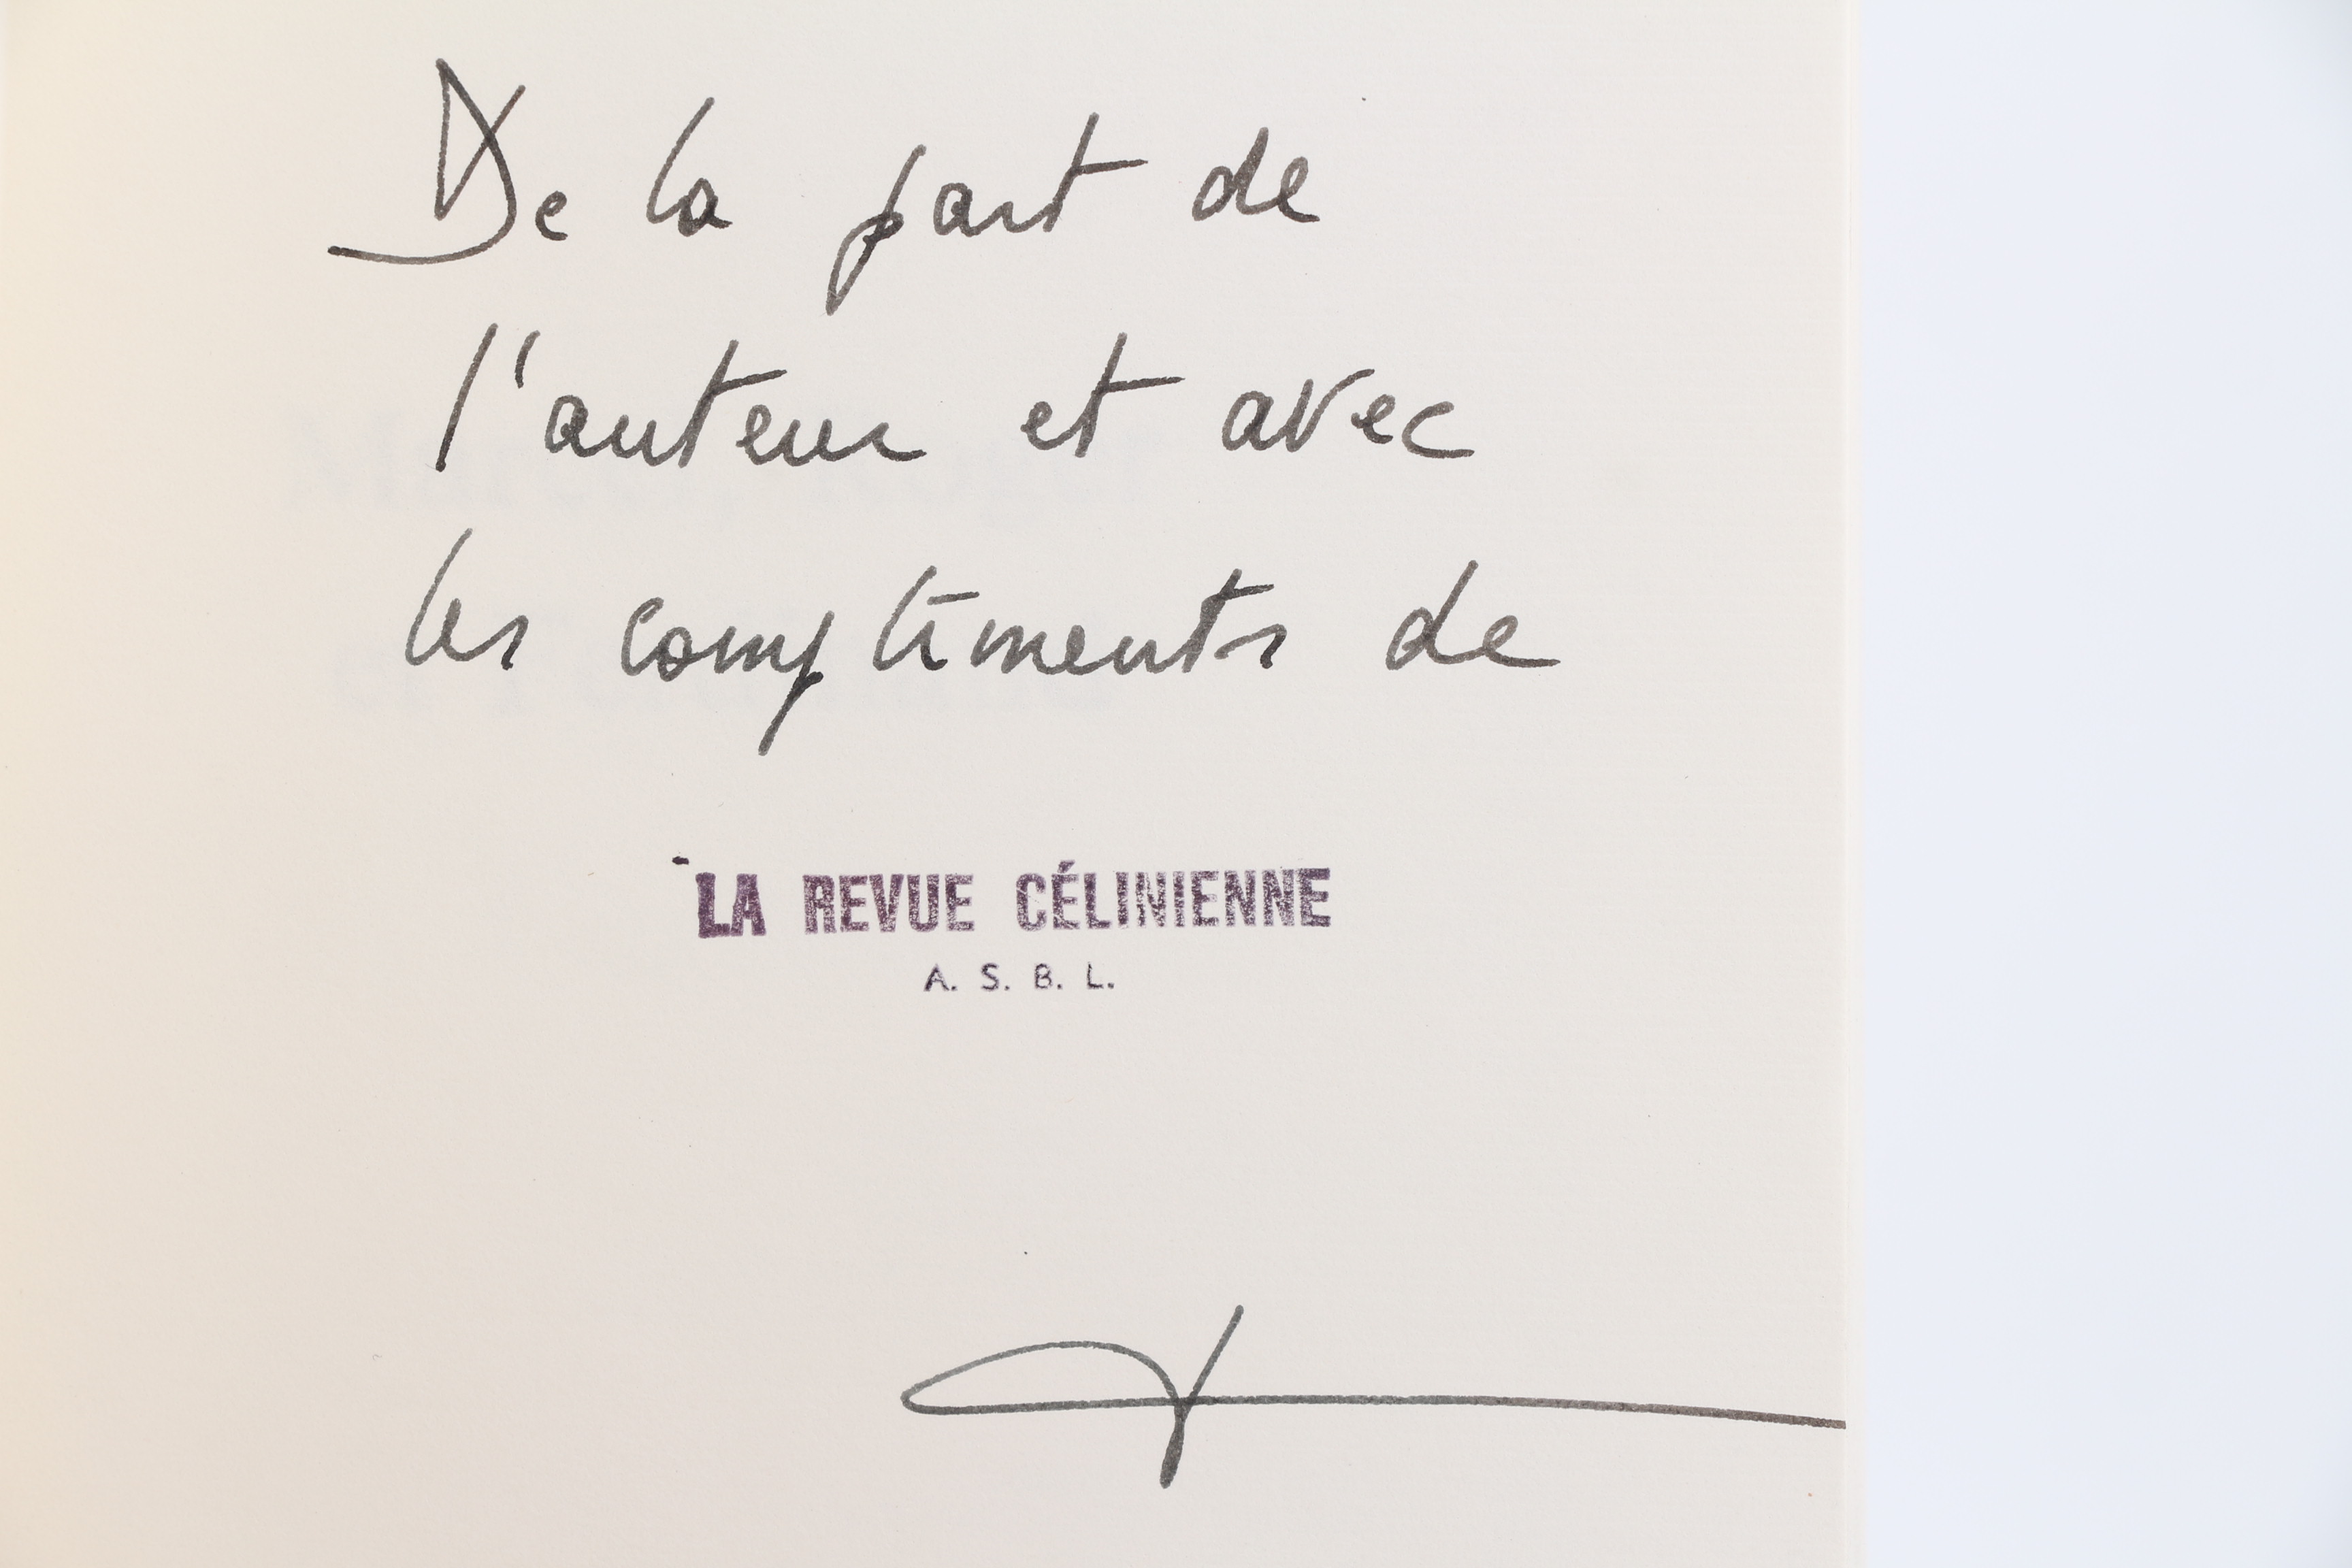 De la part de
l'auteur et avec
les compliments de
LA REVUE CÉLINIENNE
A. S. B. L.